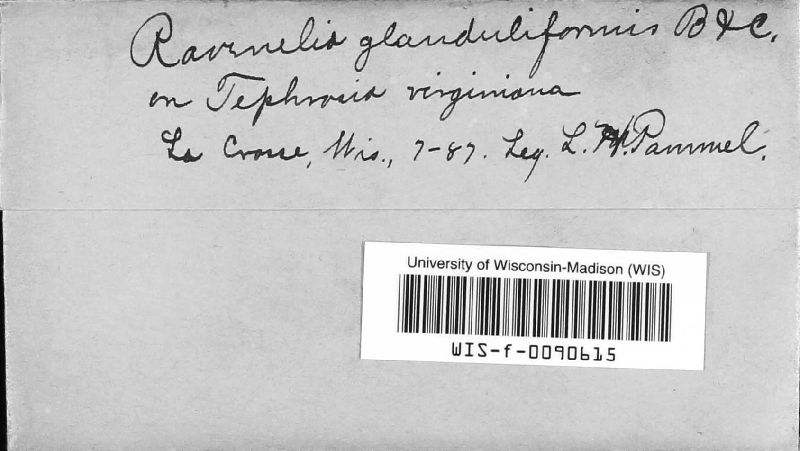 Ravenelia glanduliformis B & C.
on Tephrosia virginiana
La Crosse, Wis., 7-87. Leg. L. H. Pammel.
University of Wisconsin-Madison (WIS)
WIS-f-0090615